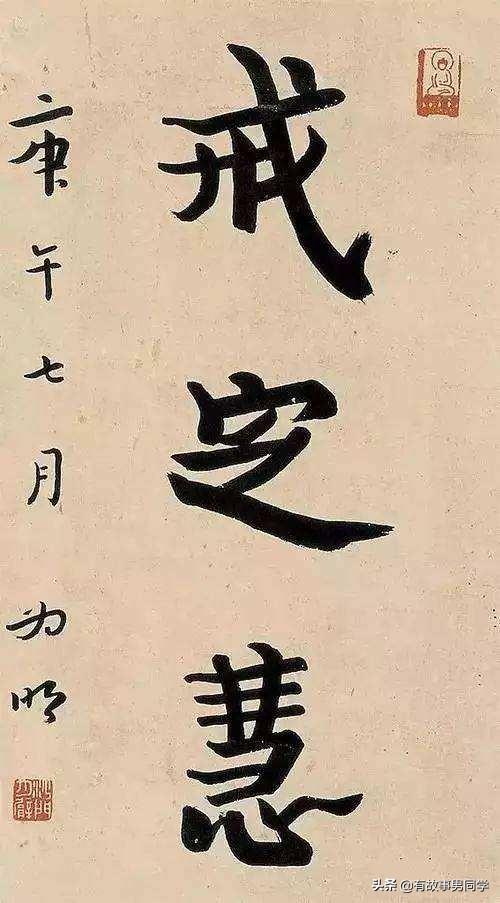 戒定慧
庚午七月 为明
头条 @有故事男同学